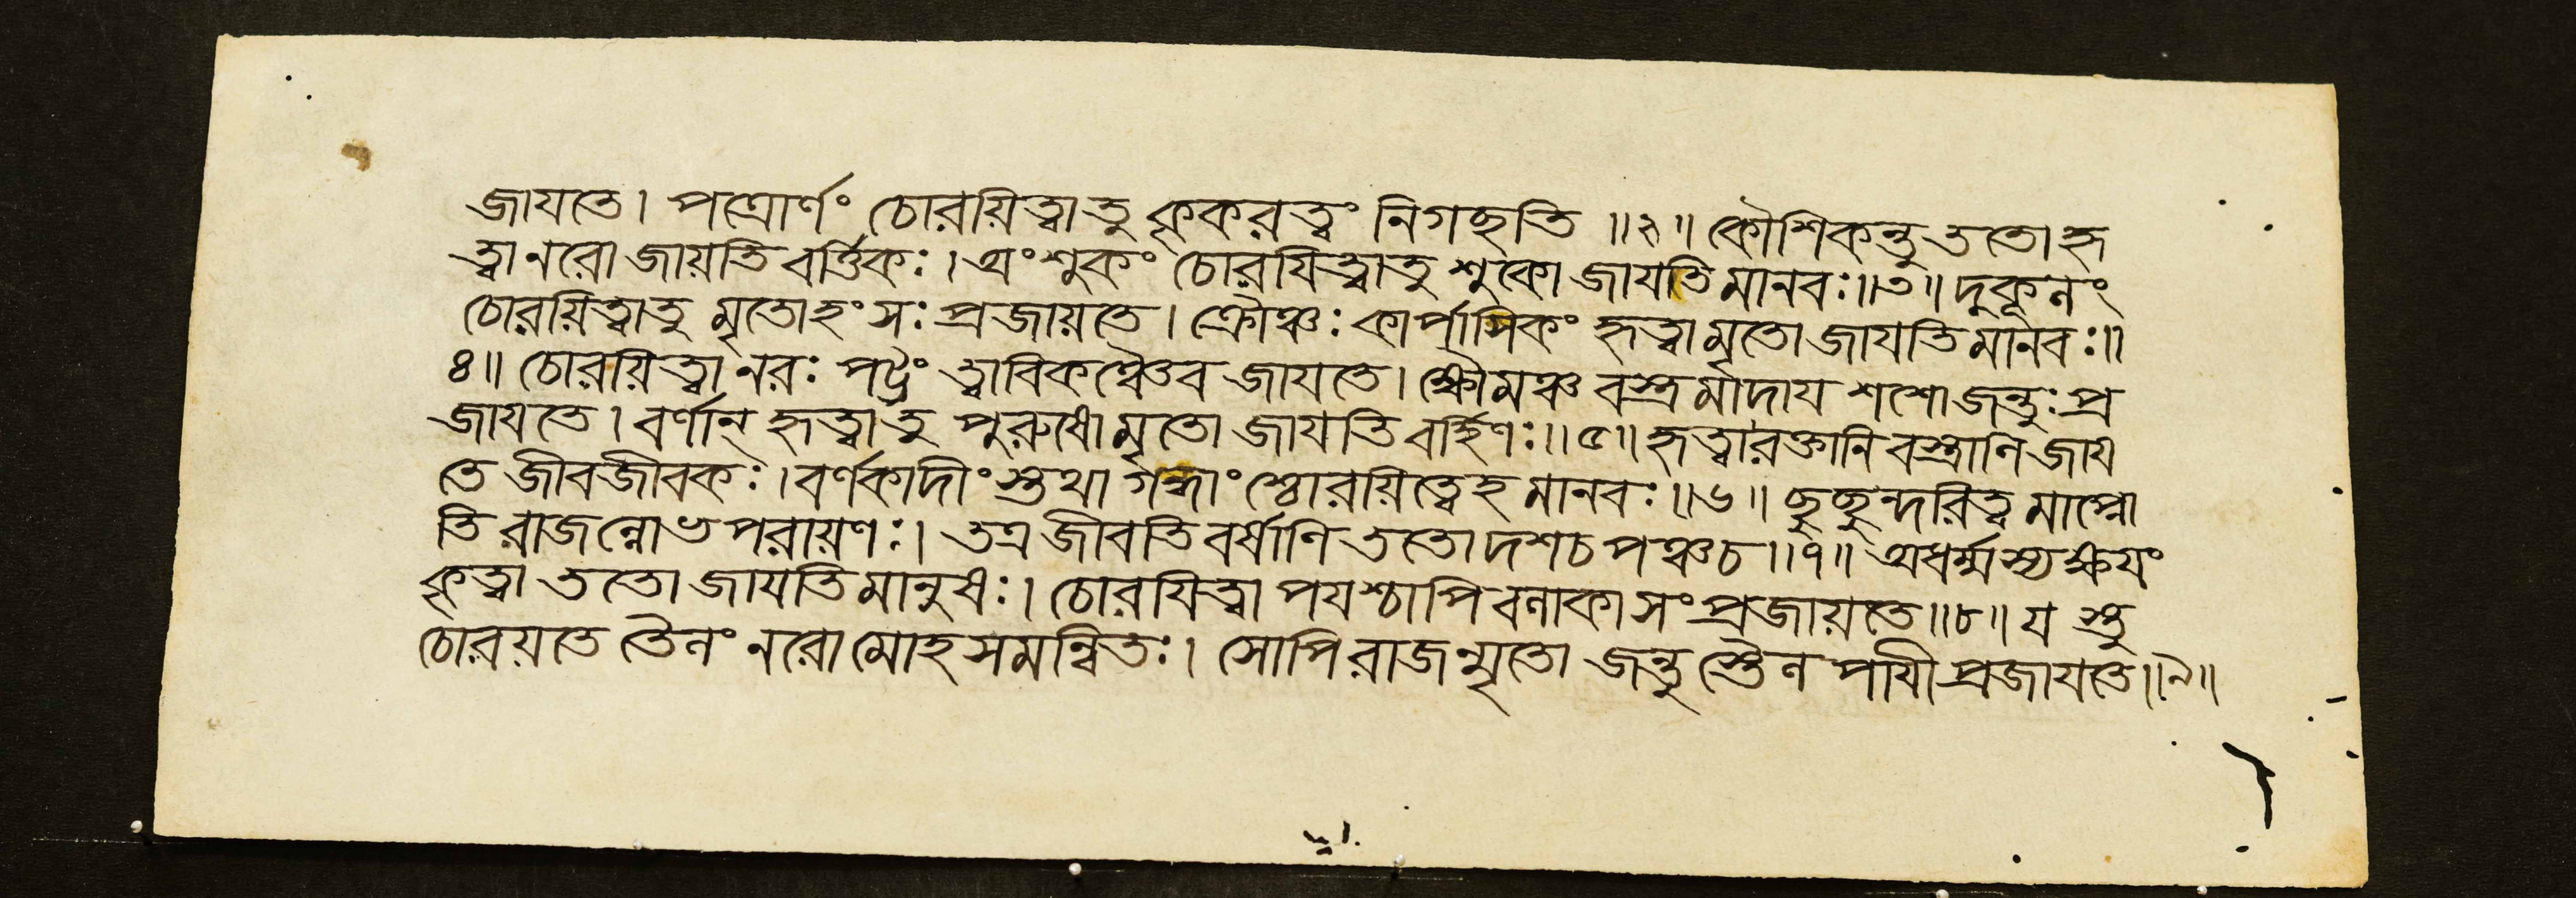 জাযতে। পত্রোর্ণং চোরয়িত্বাতু কৃকরত্বং নিগচ্ছতি ॥২॥ কৌশিকন্তু ততো হৃ
ত্বা নরো জায়তি বর্ত্তিকঃ। অংশুকং চোরযিত্বাতু শুকো জাযতি মানবঃ॥৩॥ দুকূলং
চোরয়িত্বাতু মৃতোহংসঃ প্রজায়তে। ক্রৌঞ্চঃ কার্পাসিকং হৃত্বা মৃতো জাযতি মানবঃ॥
৪॥ চোরয়িত্বা নরঃ পট্টং ত্বাবিকঞ্চৈব জাযতে। ক্ষৌমঞ্চ বস্ত্রমাদায শশো জন্তুঃ প্র
জাযতে। বর্ণান্ হৃত্বাতু পুরুষো মৃতো জাযতি বর্হিণঃ॥৫॥ হৃত্বা রক্তানি বস্ত্রানি জায
তে জীবজীবকঃ। বর্ণকাদীংস্তথা গন্ধাংশ্চোরয়িত্বেহ মানবঃ॥৬॥ ছুচ্ছুন্দরিত্বমাপ্নো
তি রাজন্নোভপরায়ণঃ। তত্র জীবতি বর্ষাণি ততো দশ চ পঞ্চ চ॥৭॥ অধর্ম্মস্য ক্ষযং
কৃত্বা ততো জাযতি মানুষঃ। চোরযিত্বা পযশ্চাপি বলাকা সংপ্রজায়তে॥৮॥ য স্তু
চোরয়তে তৈলং নরো মোহসমন্বিতঃ। সোপি রাজন্মৃতো জন্তুস্তৈলপাযী প্রজাযতে॥৯॥